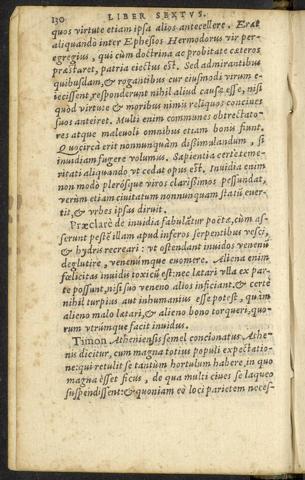 130 LIBER SEXTVS.
quos virtute etiam ipsa alios antecellere. Erat
aliquando inter Ephesios Hermodorus vir per-
egregius, qui cùm doctrina ac probitate cæteros
præstaret, patria eiectus est. Sed admirantibus
quibusdam, & rogantibus cur eiusmodi virum e-
iecissent, responderunt nihil aliud causæ esse, nisi
quòd virtute & moribus nimis reliquos conciues
suos anteiret. Multi enim communes obtrectato-
res atque maleuoli omnibus etiam bonis fiunt.
Quocirca erit nonnunquàm dissimulandum, si
inuidiam fugere volumus. Sapientia certè teme-
ritati aliquando vt cedat opus est. Inuidia enim
non modò plerósque viros clarissimos pessundat,
verùm etiam ciuitatum nonnunquam statū euer-
tit, & vrbes ipsas diruit.
Præclarè de inuidia fabulātur poëtæ, cùm as-
serunt pestē illam apud inferos serpentibus vesci,
& hydris recreari: vt ostendant inuidos venenū
deglutire, venenúmque euomere. Aliena enim
fœlicitas inuidis toxicū est: nec lætari vlla ex par-
te possunt, nisi suo veneno alios inficiant. & certè
nihil turpius aut inhumanius esse potest, quàm
alieno malo lætari, & alieno bono torqueri, quo-
rum vtrúmque facit inuidus.
Timon Atheniensis semel concionatus Athe-
nis dicitur, cum magna totius populi expectatio-
ne: qui retulit se tantùm hortulum habere, in quo
magna esset ficus, de qua multi ciues se laqueo
suspendissent: & quoniam eo loci parietem neces-